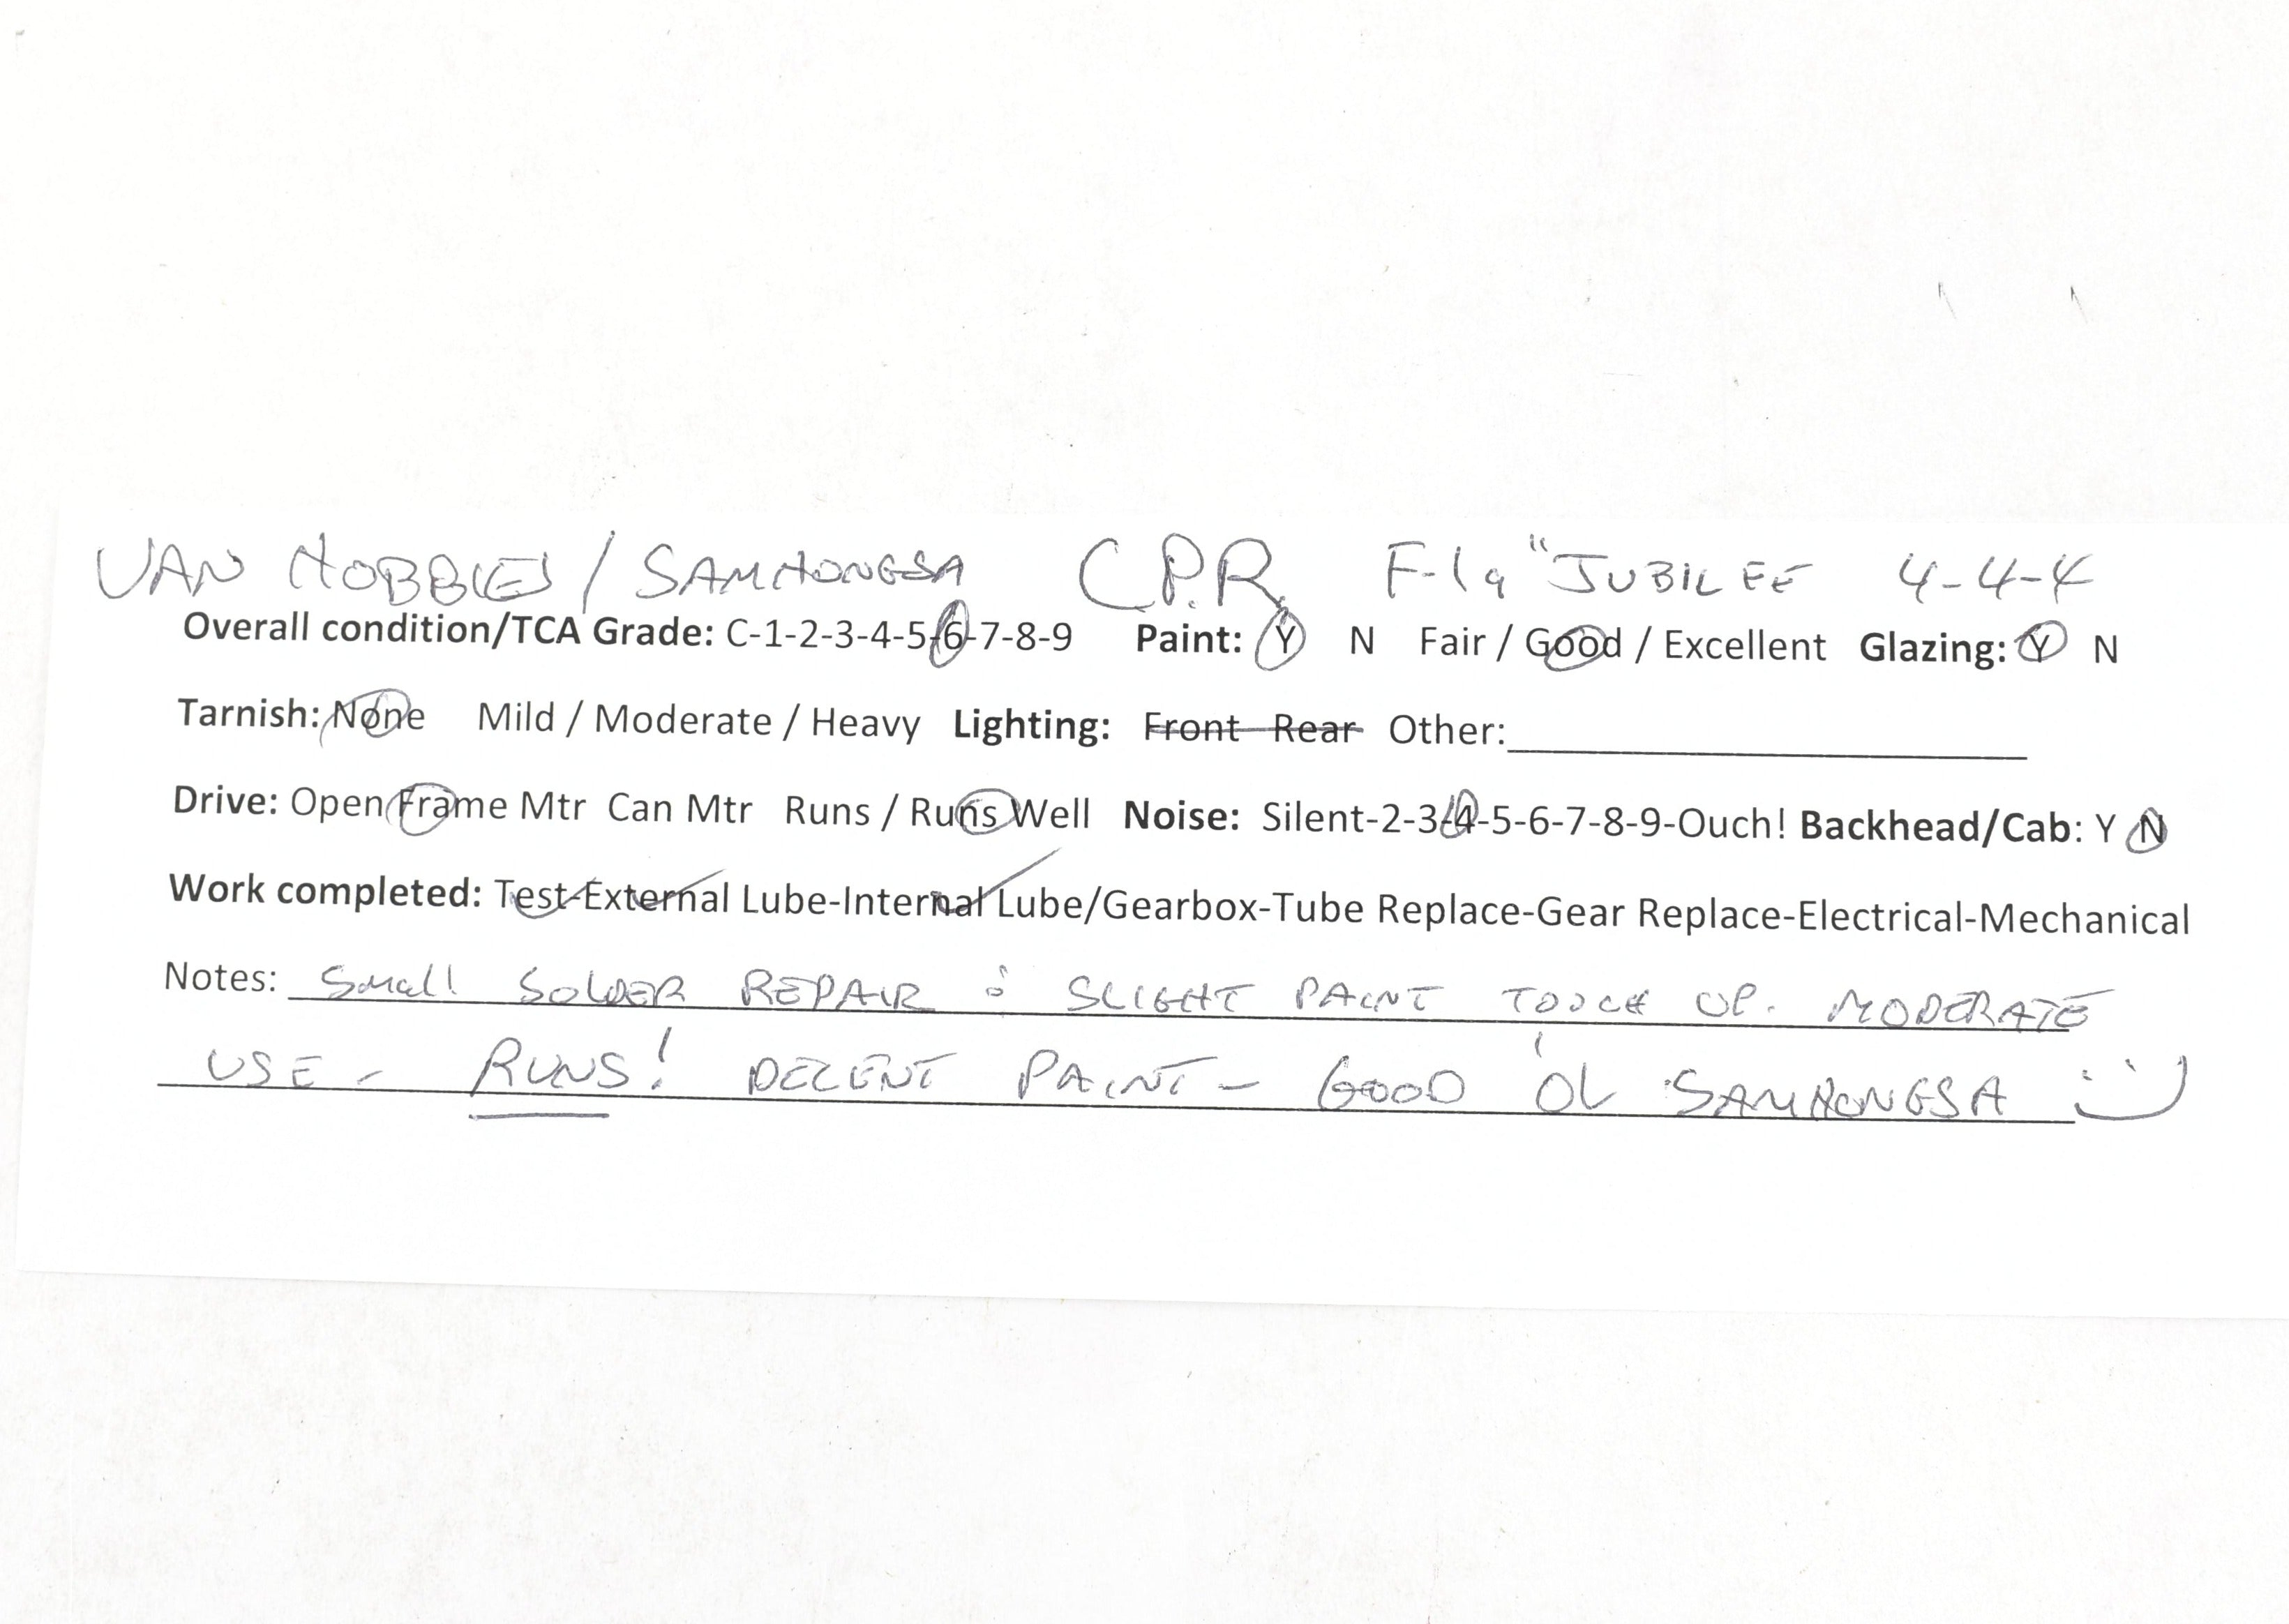 VAN HOBBIES / SAMHONGSA C.P.R. F-1a "JUBILEE 4-4-4
Overall condition/TCA Grade: C-1-2-3-4-5-6-7-8-9 Paint: Y N Fair / Good / Excellent Glazing: Y N
Tarnish: None Mild / Moderate / Heavy Lighting: Front Rear Other:
Drive: Open Frame Mtr Can Mtr Runs / Runs Well Noise: Silent-2-3-4-5-6-7-8-9-Ouch! Backhead/Cab: Y N
Work completed: Test-External Lube-Internal Lube/Gearbox-Tube Replace-Gear Replace-Electrical-Mechanical
Notes: Small SOLDER REPAIR & SLIGHT PAINT TOUCH UP. MODERATE
USE - RUNS! DECENT PAINT - GOOD 'OL SAMHONGSA :)